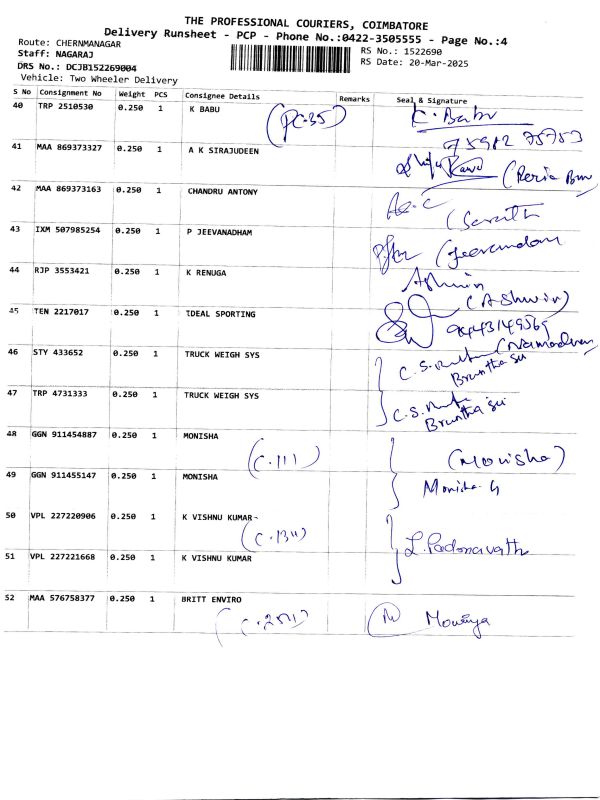 THE PROFESSIONAL COURIERS, COIMBATORE
Delivery Runsheet - PCP - Phone No.:0422-3505555 - Page No.:4
Route: CHERNMANAGAR
Staff: NAGARAJ
RS No.: 1522690
DRS No.: DCJB152269004
RS Date: 20-Mar-2025
Vehicle: Two Wheeler Delivery
S No Consignment No Weight PCS Consignee Details Remarks Seal & Signature
40 TRP 2510530 0.250 1 K BABU K. Babu
(PC-35)
75982 75753
41 MAA 869373327 0.250 1 A K SIRAJUDEEN
42 MAA 869373163 0.250 1 CHANDRU ANTONY
(Sarath
43 IXM 507985254 0.250 1 P JEEVANADHAM
(Jeevandam
44 RJP 3553421 0.250 1 K RENUGA Ashwin
(Ashwin)
45 TEN 2217017 0.250 1 IDEAL SPORTING 9443149569
46 STY 433652 0.250 1 TRUCK WEIGH SYS
47 TRP 4731333 0.250 1 TRUCK WEIGH SYS
48 GGN 911454887 0.250 1 MONISHA
(C.111) (Monisha)
49 GGN 911455147 0.250 1 MONISHA Monisha. G
50 VPL 227220906 0.250 1 K VISHNU KUMAR-
(C.134)
51 VPL 227221668 0.250 1 K VISHNU KUMAR
52 MAA 576758377 0.250 1 BRITT ENVIRO